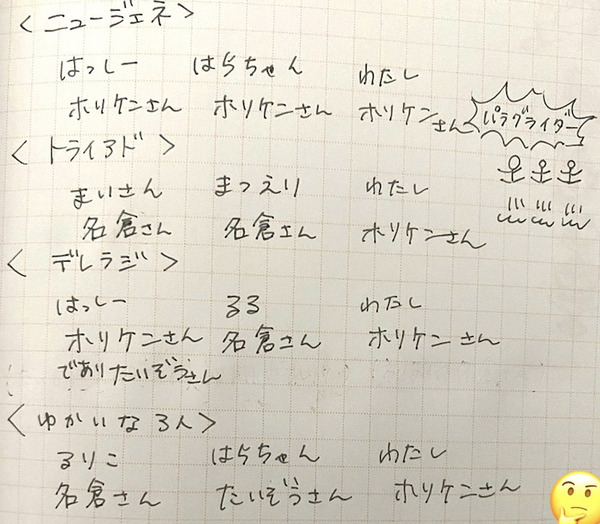 <ニュージェネ>
はっしー はらちゃん わたし
ホリケンさん ホリケンさん ホリケンさん
パラグライダー
<トライアド>
まいさん まつえり わたし
名倉さん 名倉さん ホリケンさん
<デレラジ>
はっしー るる わたし
ホリケンさん 名倉さん ホリケンさん
でありたいぞうさん
<ゆかいな3人>
るりこ はらちゃん わたし
名倉さん たいぞうさん ホリケンさん